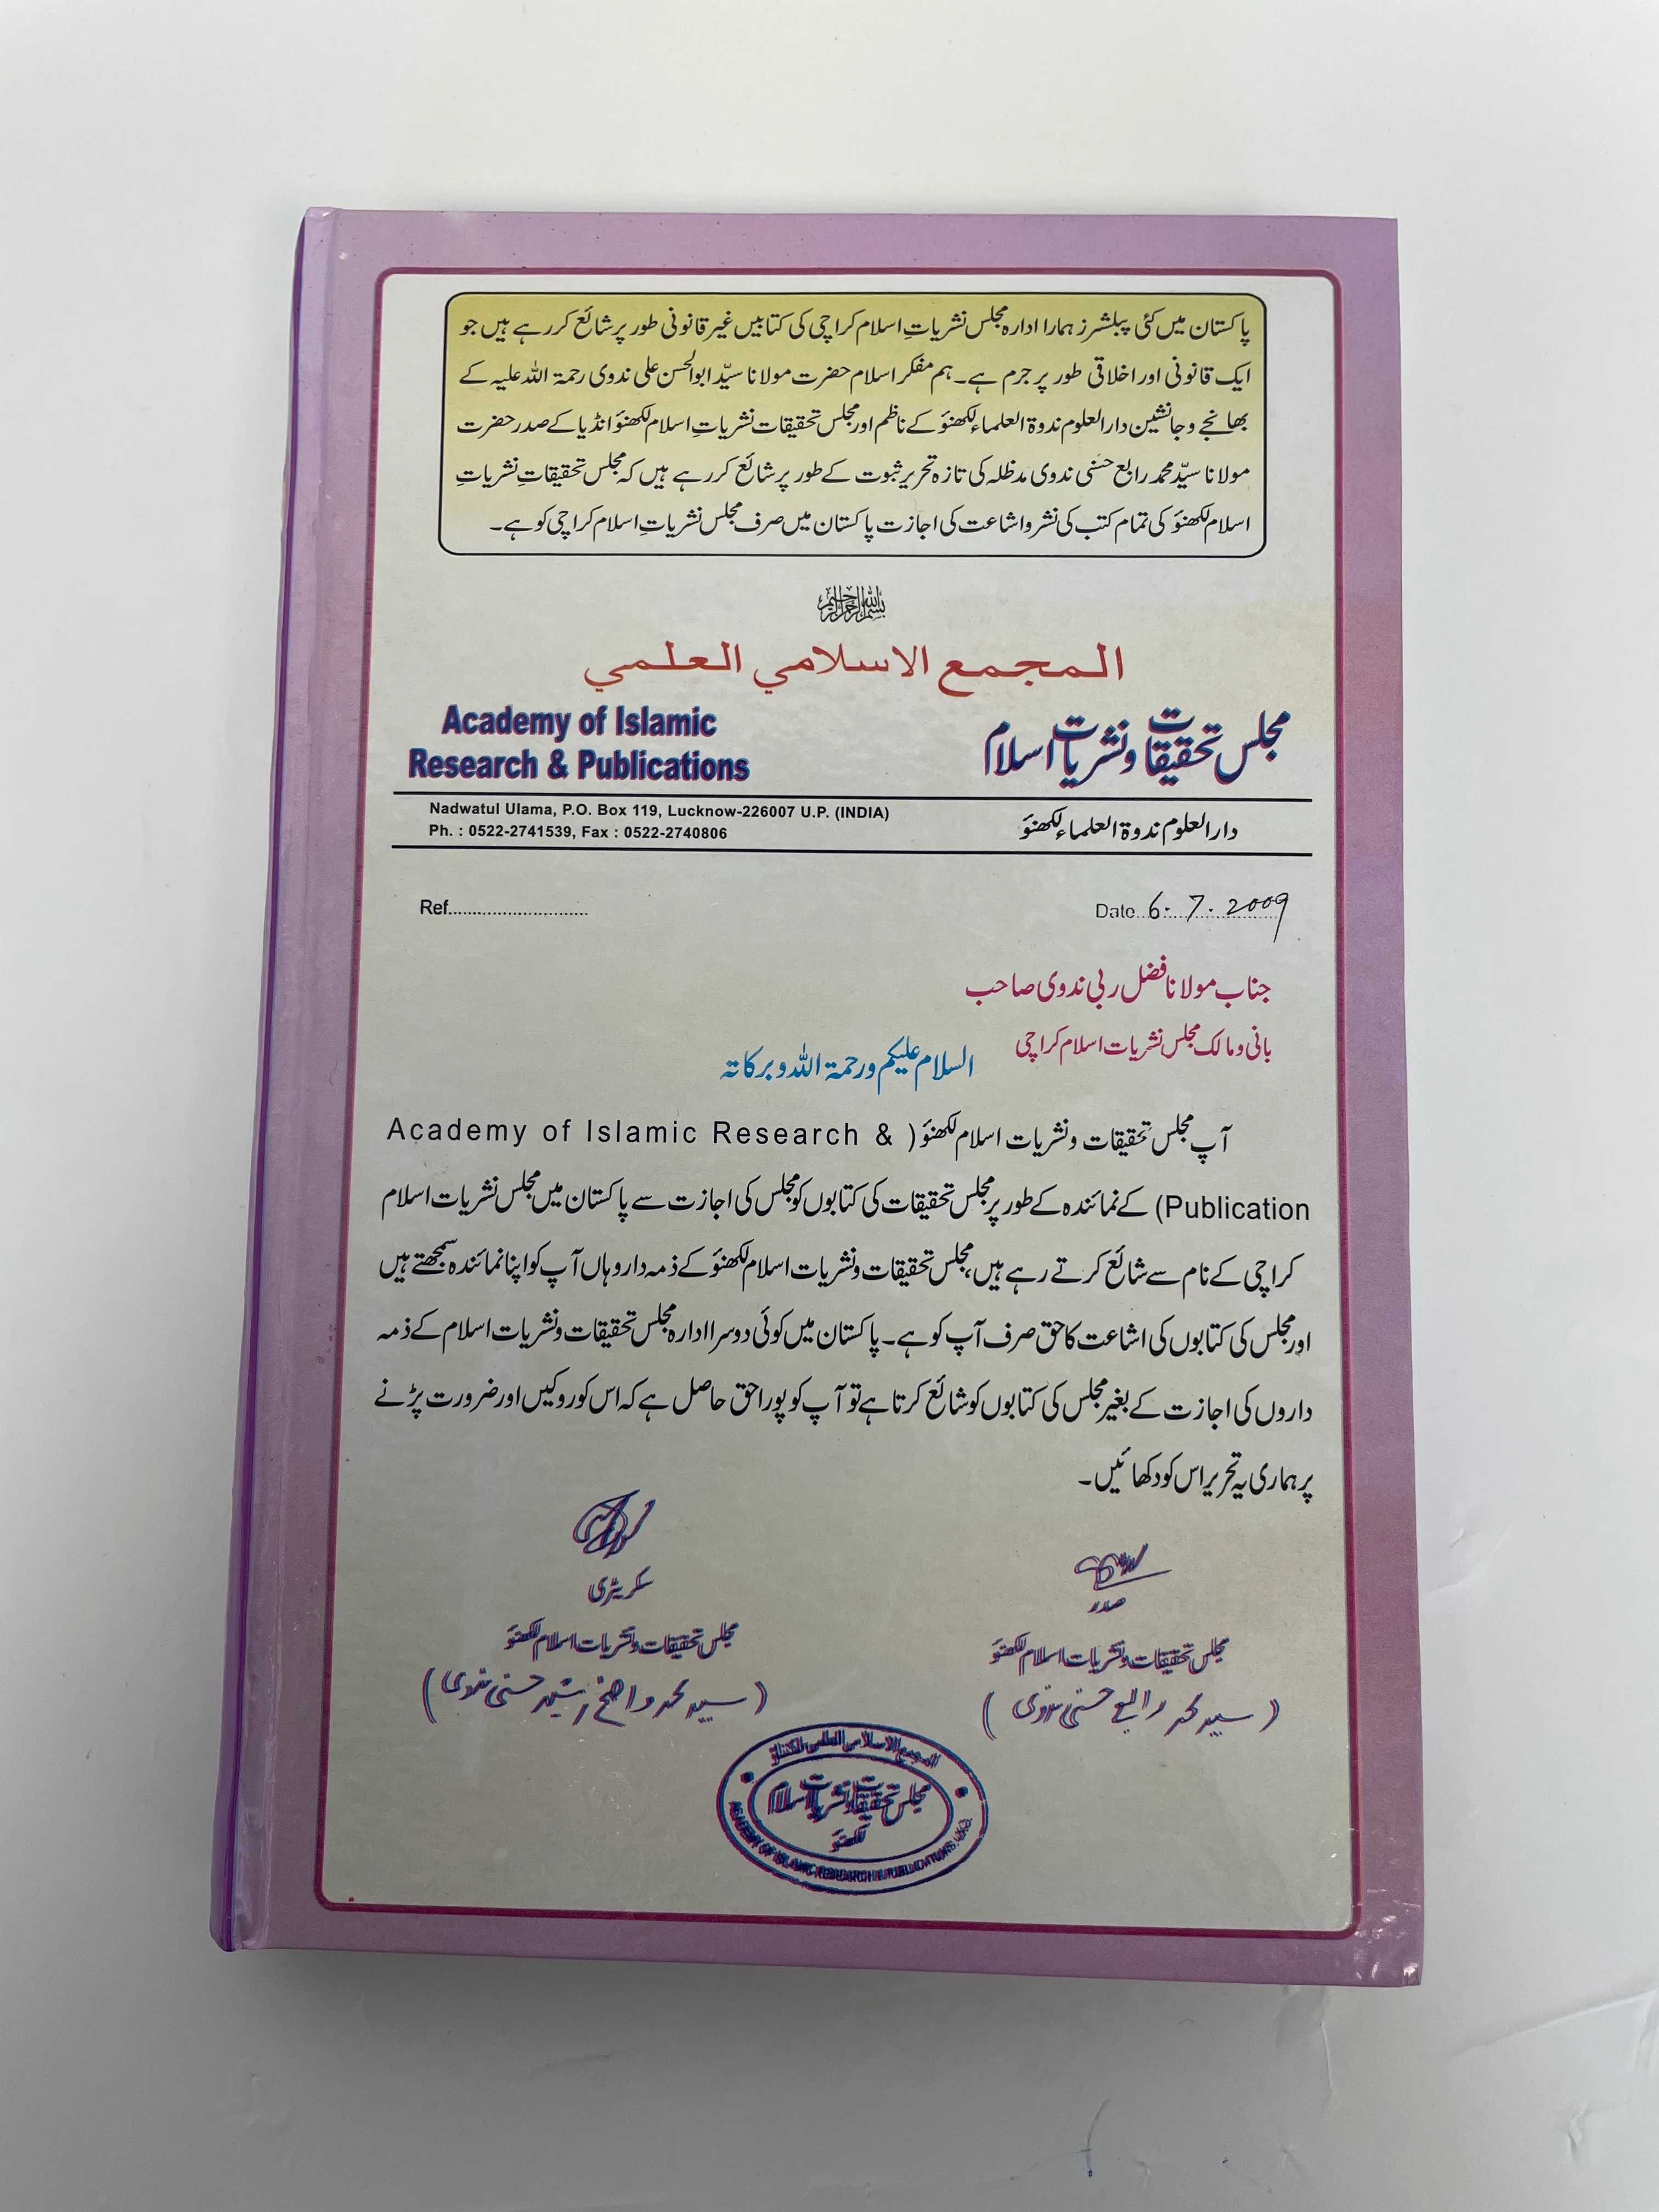 پاکستان میں کئی پبلشرز ہمارا ادارہ مجلس نشریاتِ اسلام کراچی کی کتابیں غیر قانونی طور پر شائع کررہے ہیں جو
ایک قانونی اور اخلاقی طور پر جرم ہے۔ ہم مفکر اسلام حضرت مولانا سیّد ابوالحسن علی ندوی رحمۃ اللہ علیہ کے
بھانجے و جانشین دارالعلوم ندوۃ العلماء لکھنؤ کے ناظم اور مجلس تحقیقات نشریاتِ اسلام لکھنؤ انڈیا کے صدر حضرت
مولانا سیّد محمد رابع حسنی ندوی مدظلہ کی تازہ تحریر ثبوت کے طور پر شائع کررہے ہیں کہ مجلس تحقیقاتِ نشریاتِ
اسلام لکھنؤ کی تمام کتب کی نشر و اشاعت کی اجازت پاکستان میں صرف مجلس نشریاتِ اسلام کراچی کو ہے۔
بسم اللہ الرحمن الرحیم
المجمع الاسلامي العلمي
Academy of Islamic
Research & Publications
مجلس تحقیقات و نشریات اسلام
Nadwatul Ulama, P.O. Box 119, Lucknow-226007 U.P. (INDIA)
Ph. : 0522-2741539, Fax : 0522-2740806
دارالعلوم ندوۃ العلماء لکھنؤ
Ref............................
Date 6. 7. 2009
جناب مولانا فضل ربی ندوی صاحب
بانی و مالک مجلس نشریات اسلام کراچی
السلام علیکم ورحمۃ اللہ وبرکاتہ
آپ مجلس تحقیقات ونشریات اسلام لکھنؤ ( Academy of Islamic Research &
Publication) کے نمائندہ کے طور پر مجلس تحقیقات کی کتابوں کو مجلس کی اجازت سے پاکستان میں مجلس نشریات اسلام
کراچی کے نام سے شائع کرتے رہے ہیں، مجلس تحقیقات ونشریات اسلام لکھنؤ کے ذمہ دار وہاں آپ کو اپنا نمائندہ سمجھتے ہیں
اور مجلس کی کتابوں کی اشاعت کا حق صرف آپ کو ہے۔ پاکستان میں کوئی دوسرا ادارہ مجلس تحقیقات ونشریات اسلام کے ذمہ
داروں کی اجازت کے بغیر مجلس کی کتابوں کو شائع کرتا ہے تو آپ کو پورا حق حاصل ہے کہ اس کو روکیں اور ضرورت پڑنے
پر ہماری یہ تحریر اس کو دکھائیں۔
صدر
مجلس تحقیقات ونشریات اسلام لکھنؤ
(سید محمد رابع حسنی ندوی)
سکریٹری
مجلس تحقیقات ونشریات اسلام لکھنؤ
(سید محمد واضح رشید حسنی ندوی)
المجمع الاسلامي العلمي لكناؤ
مجلس تحقیقات ونشریات اسلام
لکھنؤ
ACADEMY OF ISLAMIC RESEARCH & PUBLICATIONS